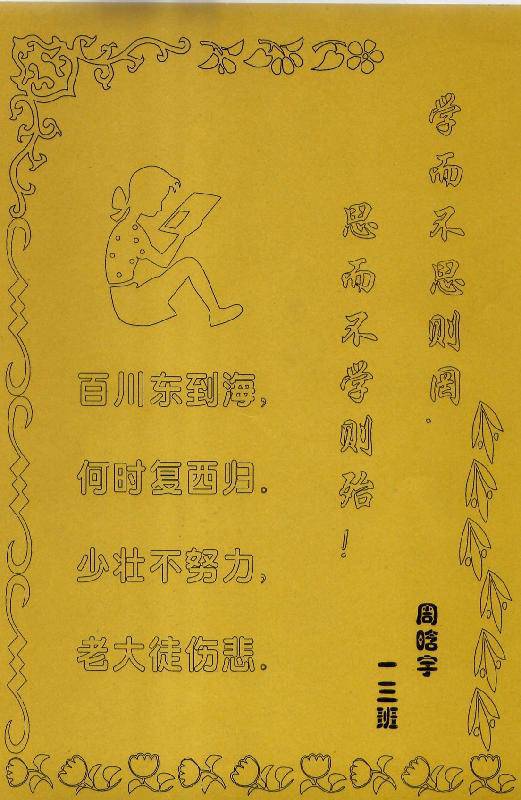 学而不思则罔，
思而不学则殆！
百川东到海，
何时复西归。
少壮不努力，
老大徒伤悲。
周晗宇
一三班